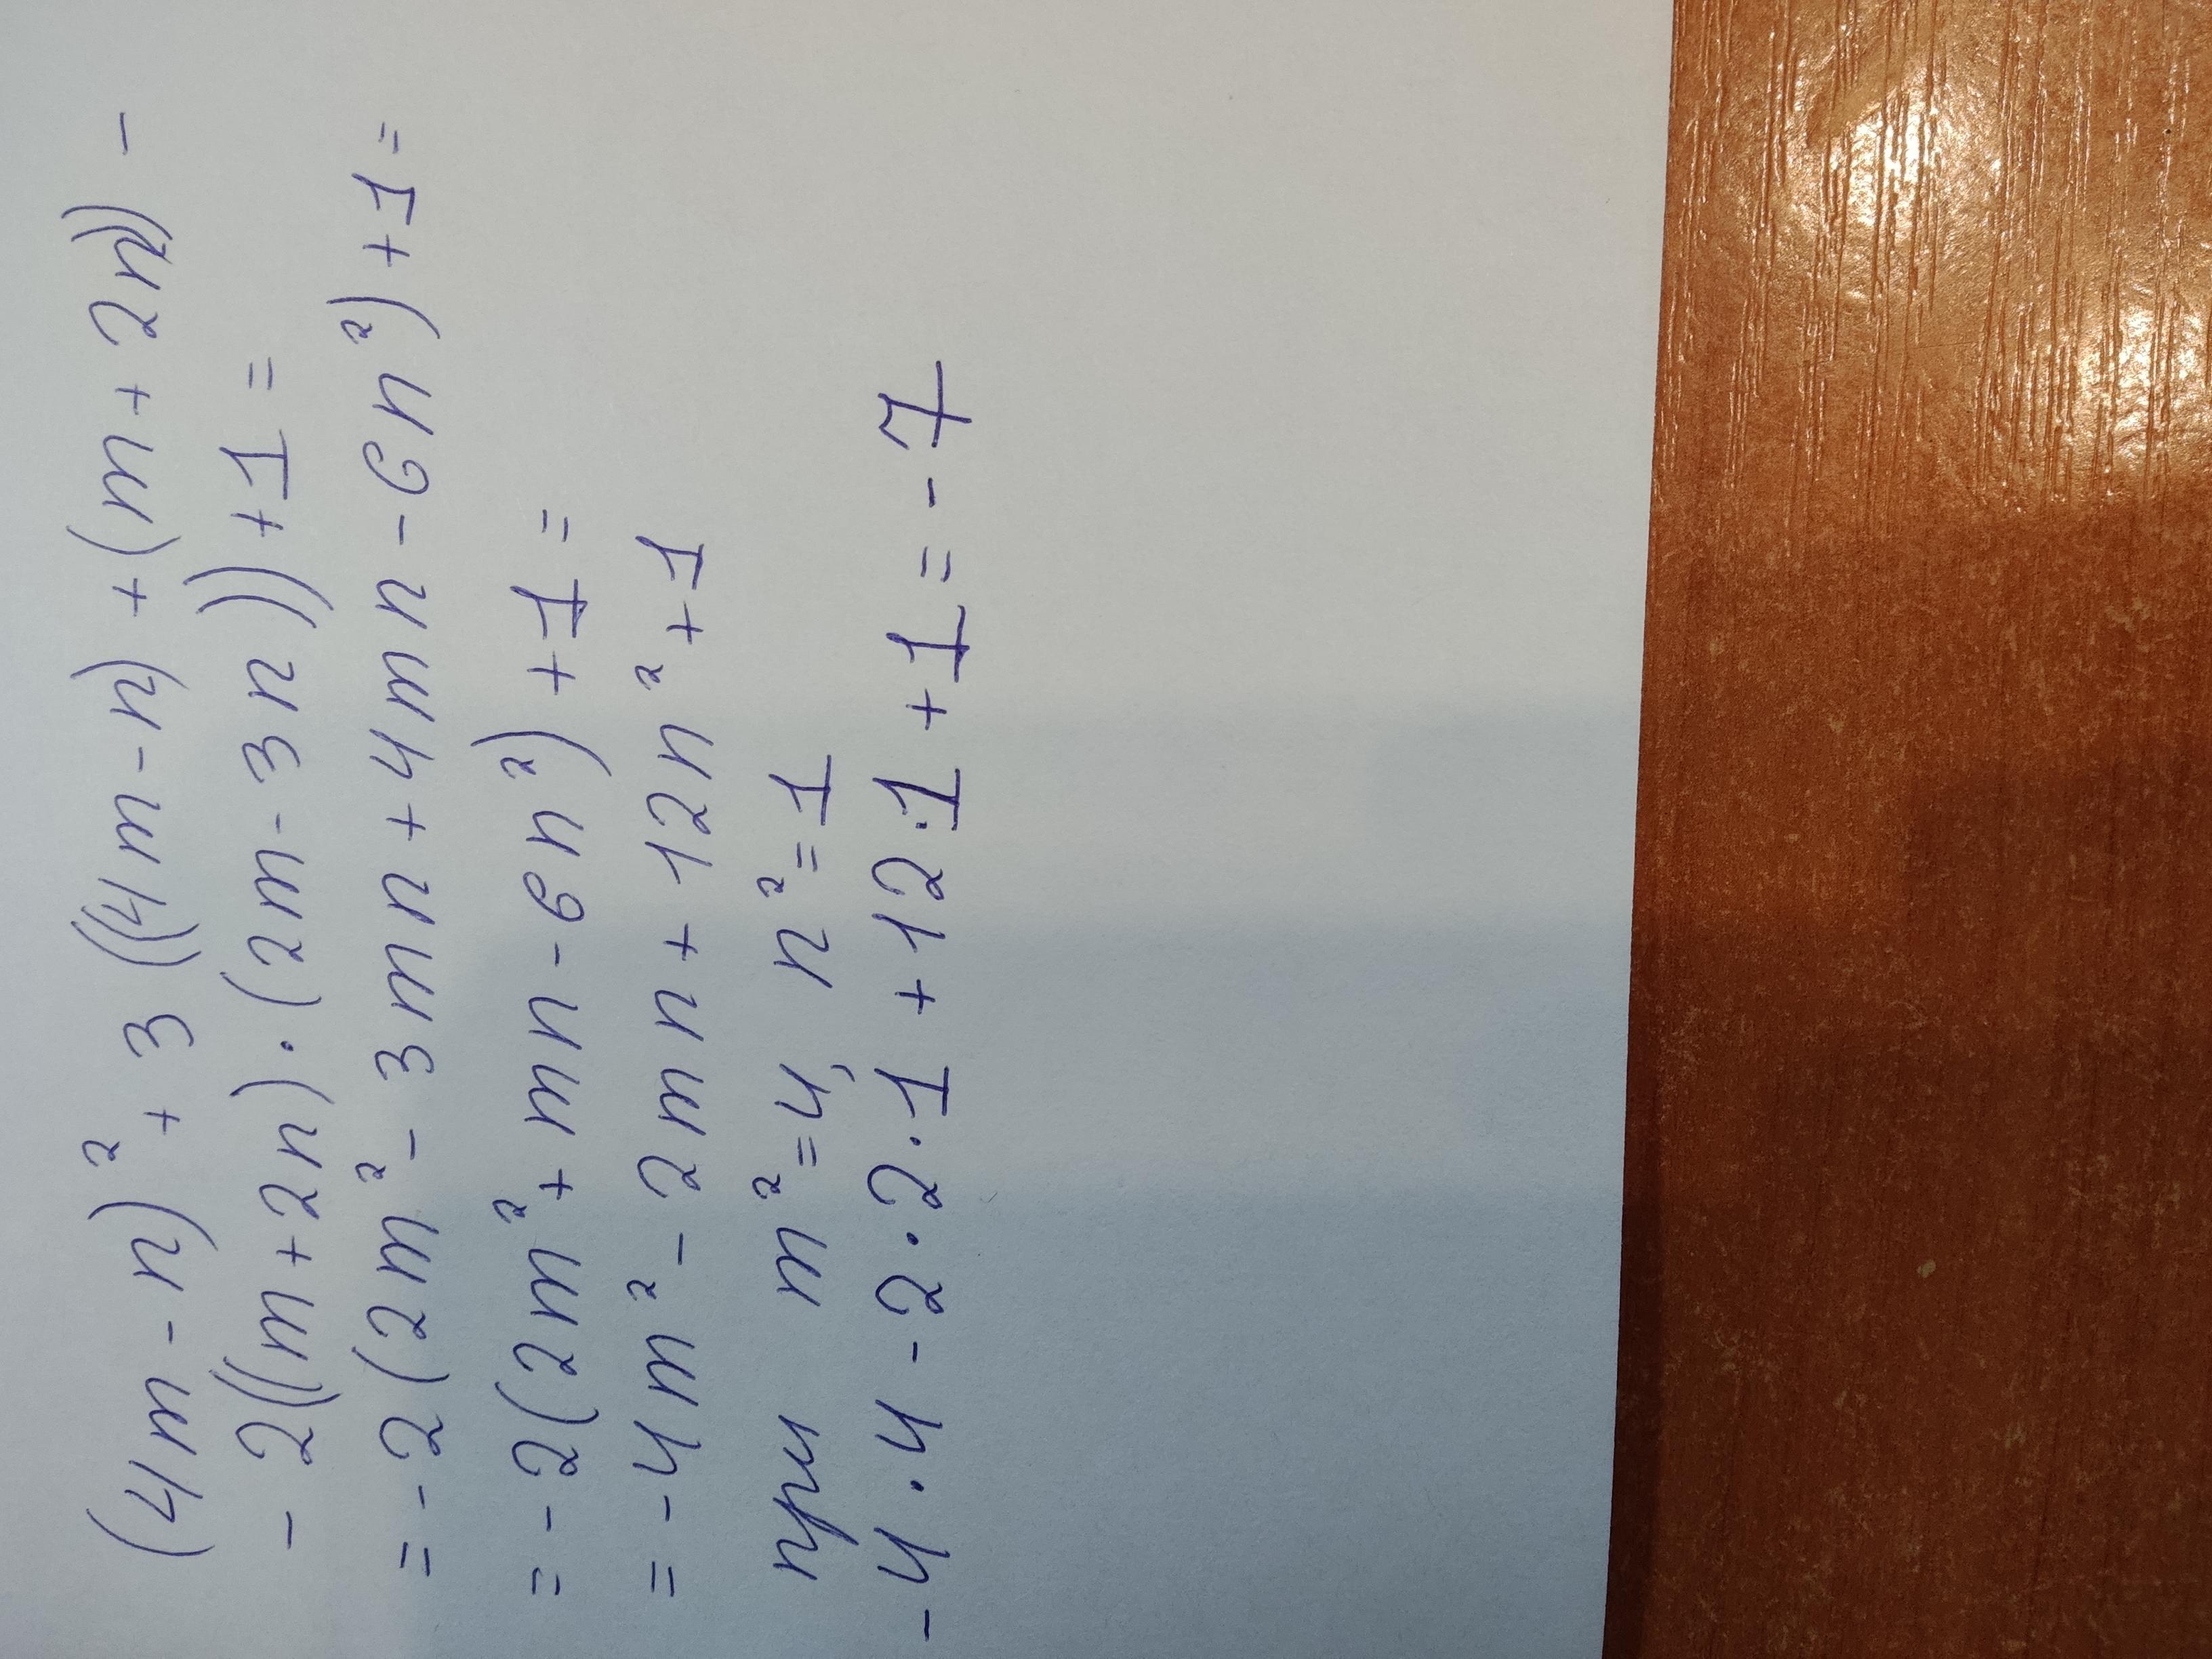 (4m-n)²+3((4m-n)+(m+2n)-
-2((m+2n)·(2m-3n))+1=
=-2(2m²-3mn+4mn-6n²)+1=
=-2(2m²+mn-6n²)+1=
=-4m²-2mn+12n²+1
при m²=4, n²=1
-4·4-2·2·1+12·1+1=-7